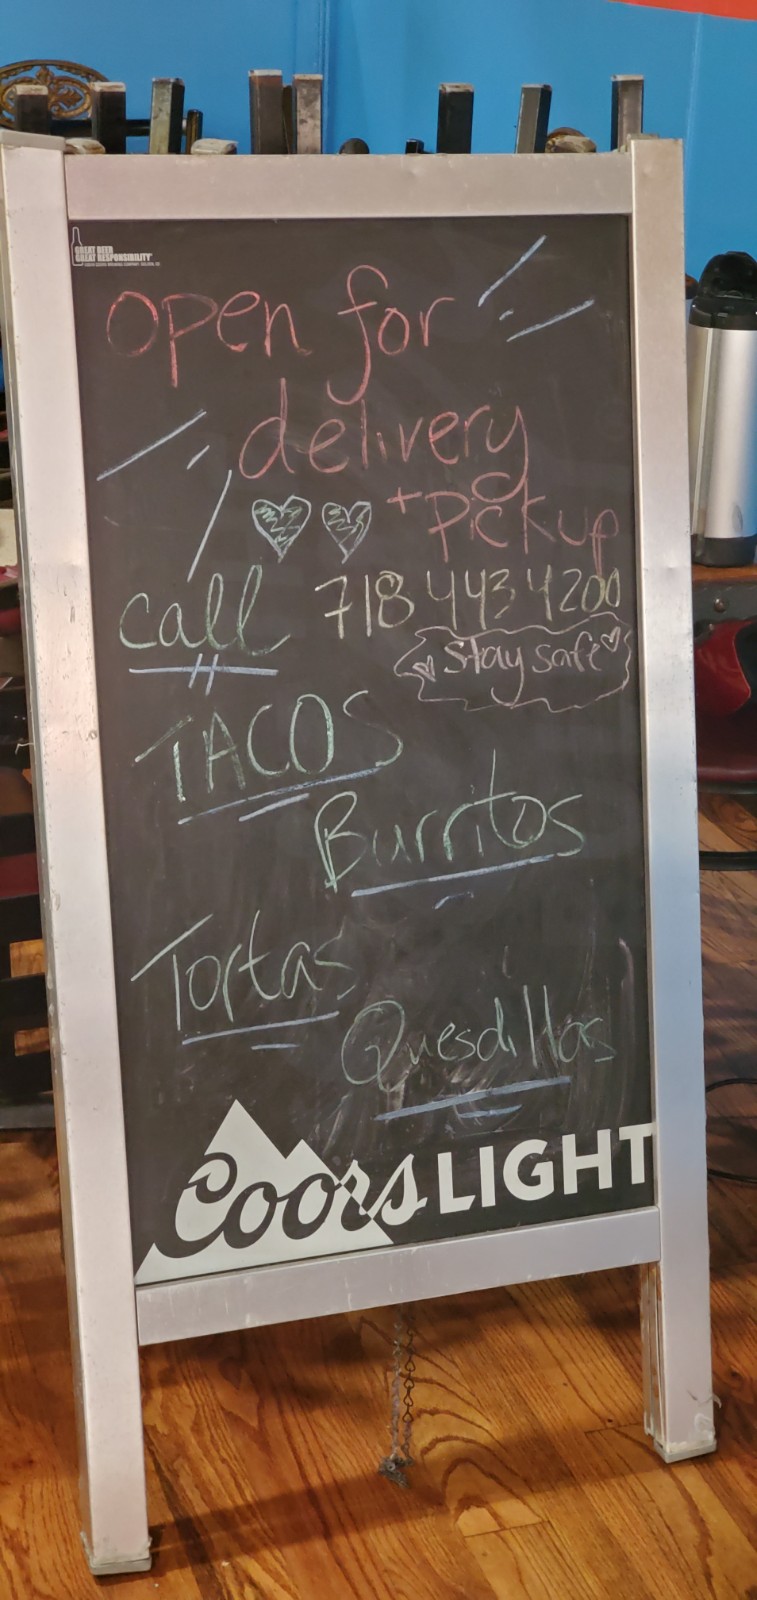 GREAT BEER
GREAT RESPONSIBILITY
open for
delivery
+ Pickup
call 718 443 4200
Stay safe
TACOS
Burritos
Tortas
Quesdillas
Coors LIGHT